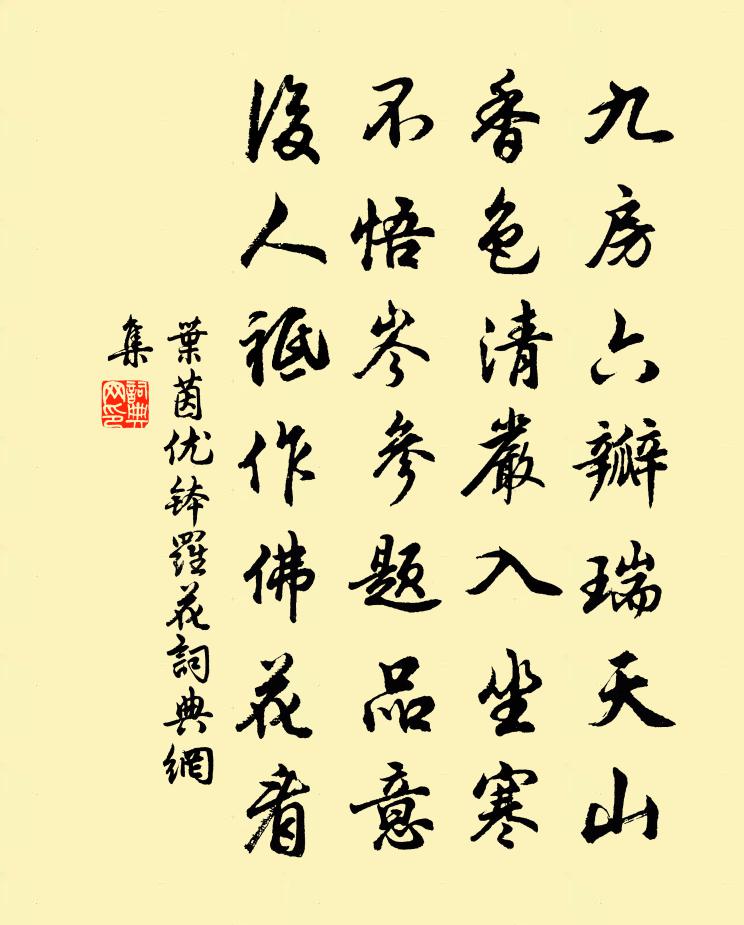 九房六瓣瑞天山
香色清嚴入坐寒
不悟岑參題品意
後人祗作佛花看
葉茵优钵羅花詞典網
集
詞典網印